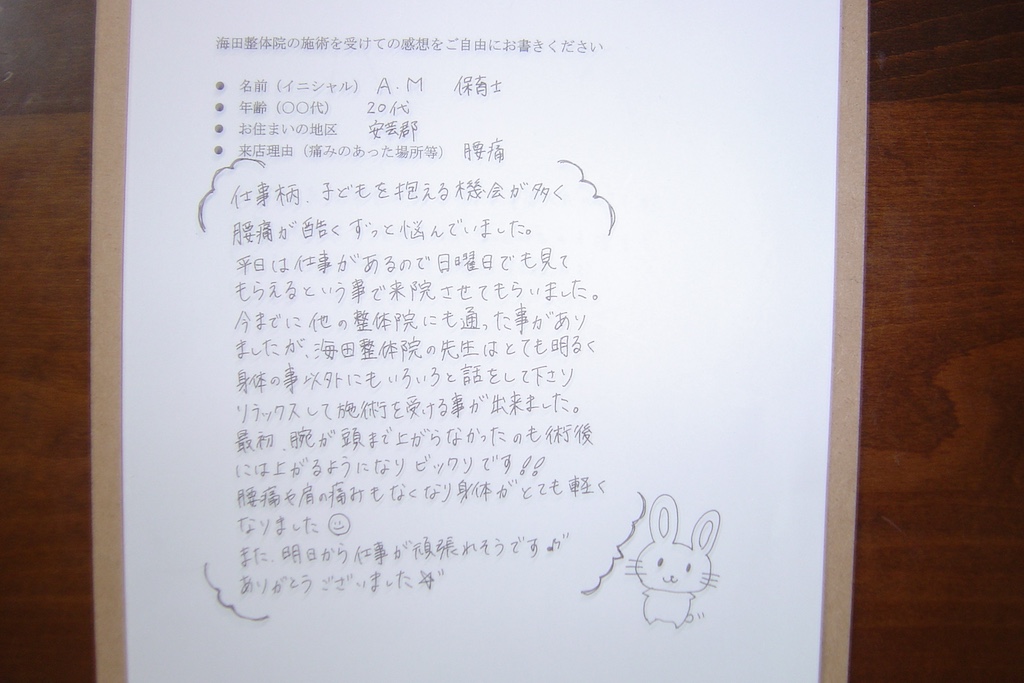 海田整体院の施術を受けての感想をご自由にお書きください
● 名前（イニシャル） A.M 保育士
● 年齢（〇〇代） 20代
● お住まいの地区 安芸郡
● 来店理由（痛みのあった場所等） 腰痛
仕事柄、子どもを抱える機会が多く
腰痛が酷くずっと悩んでいました。
平日は仕事があるので日曜日でも見て
もらえるという事で来院させてもらいました。
今までに他の整体院にも通った事があり
ましたが、海田整体院の先生はとても明るく
身体の事以外にもいろいろと話をして下さり
リラックスして施術を受ける事が出来ました。
最初、腕が頭まで上がらなかったのも術後
には上がるようになりビックリです!!
腰痛や肩の痛みもなくなり身体がとても軽く
なりました☺
また、明日から仕事が頑張れそうです♪
ありがとうございました☆